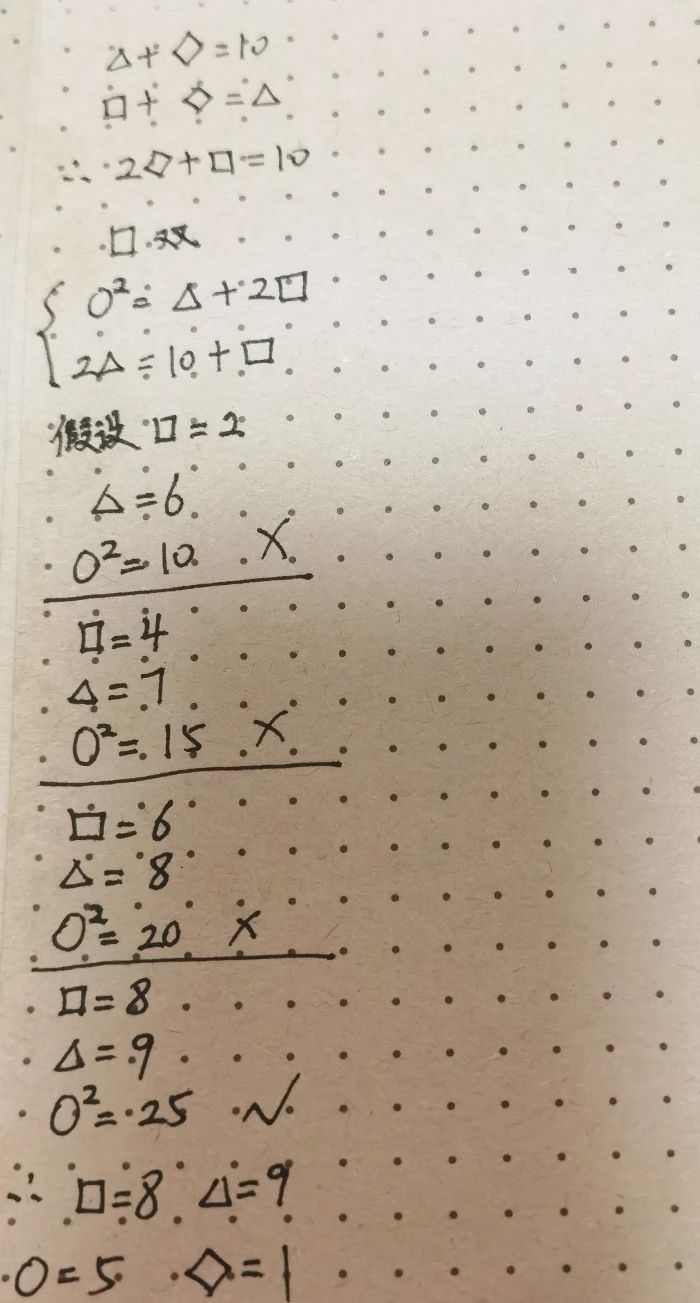 △+◇=10
□+◇=△
∴2◇+□=10
□双
O²=△+2□
2△=10+□
假设□=2
△=6
O²=10 ×
□=4
△=7
O²=15 ×
□=6
△=8
O²=20 ×
□=8
△=9
O²=25 √
∴□=8 △=9
O=5 ◇=1